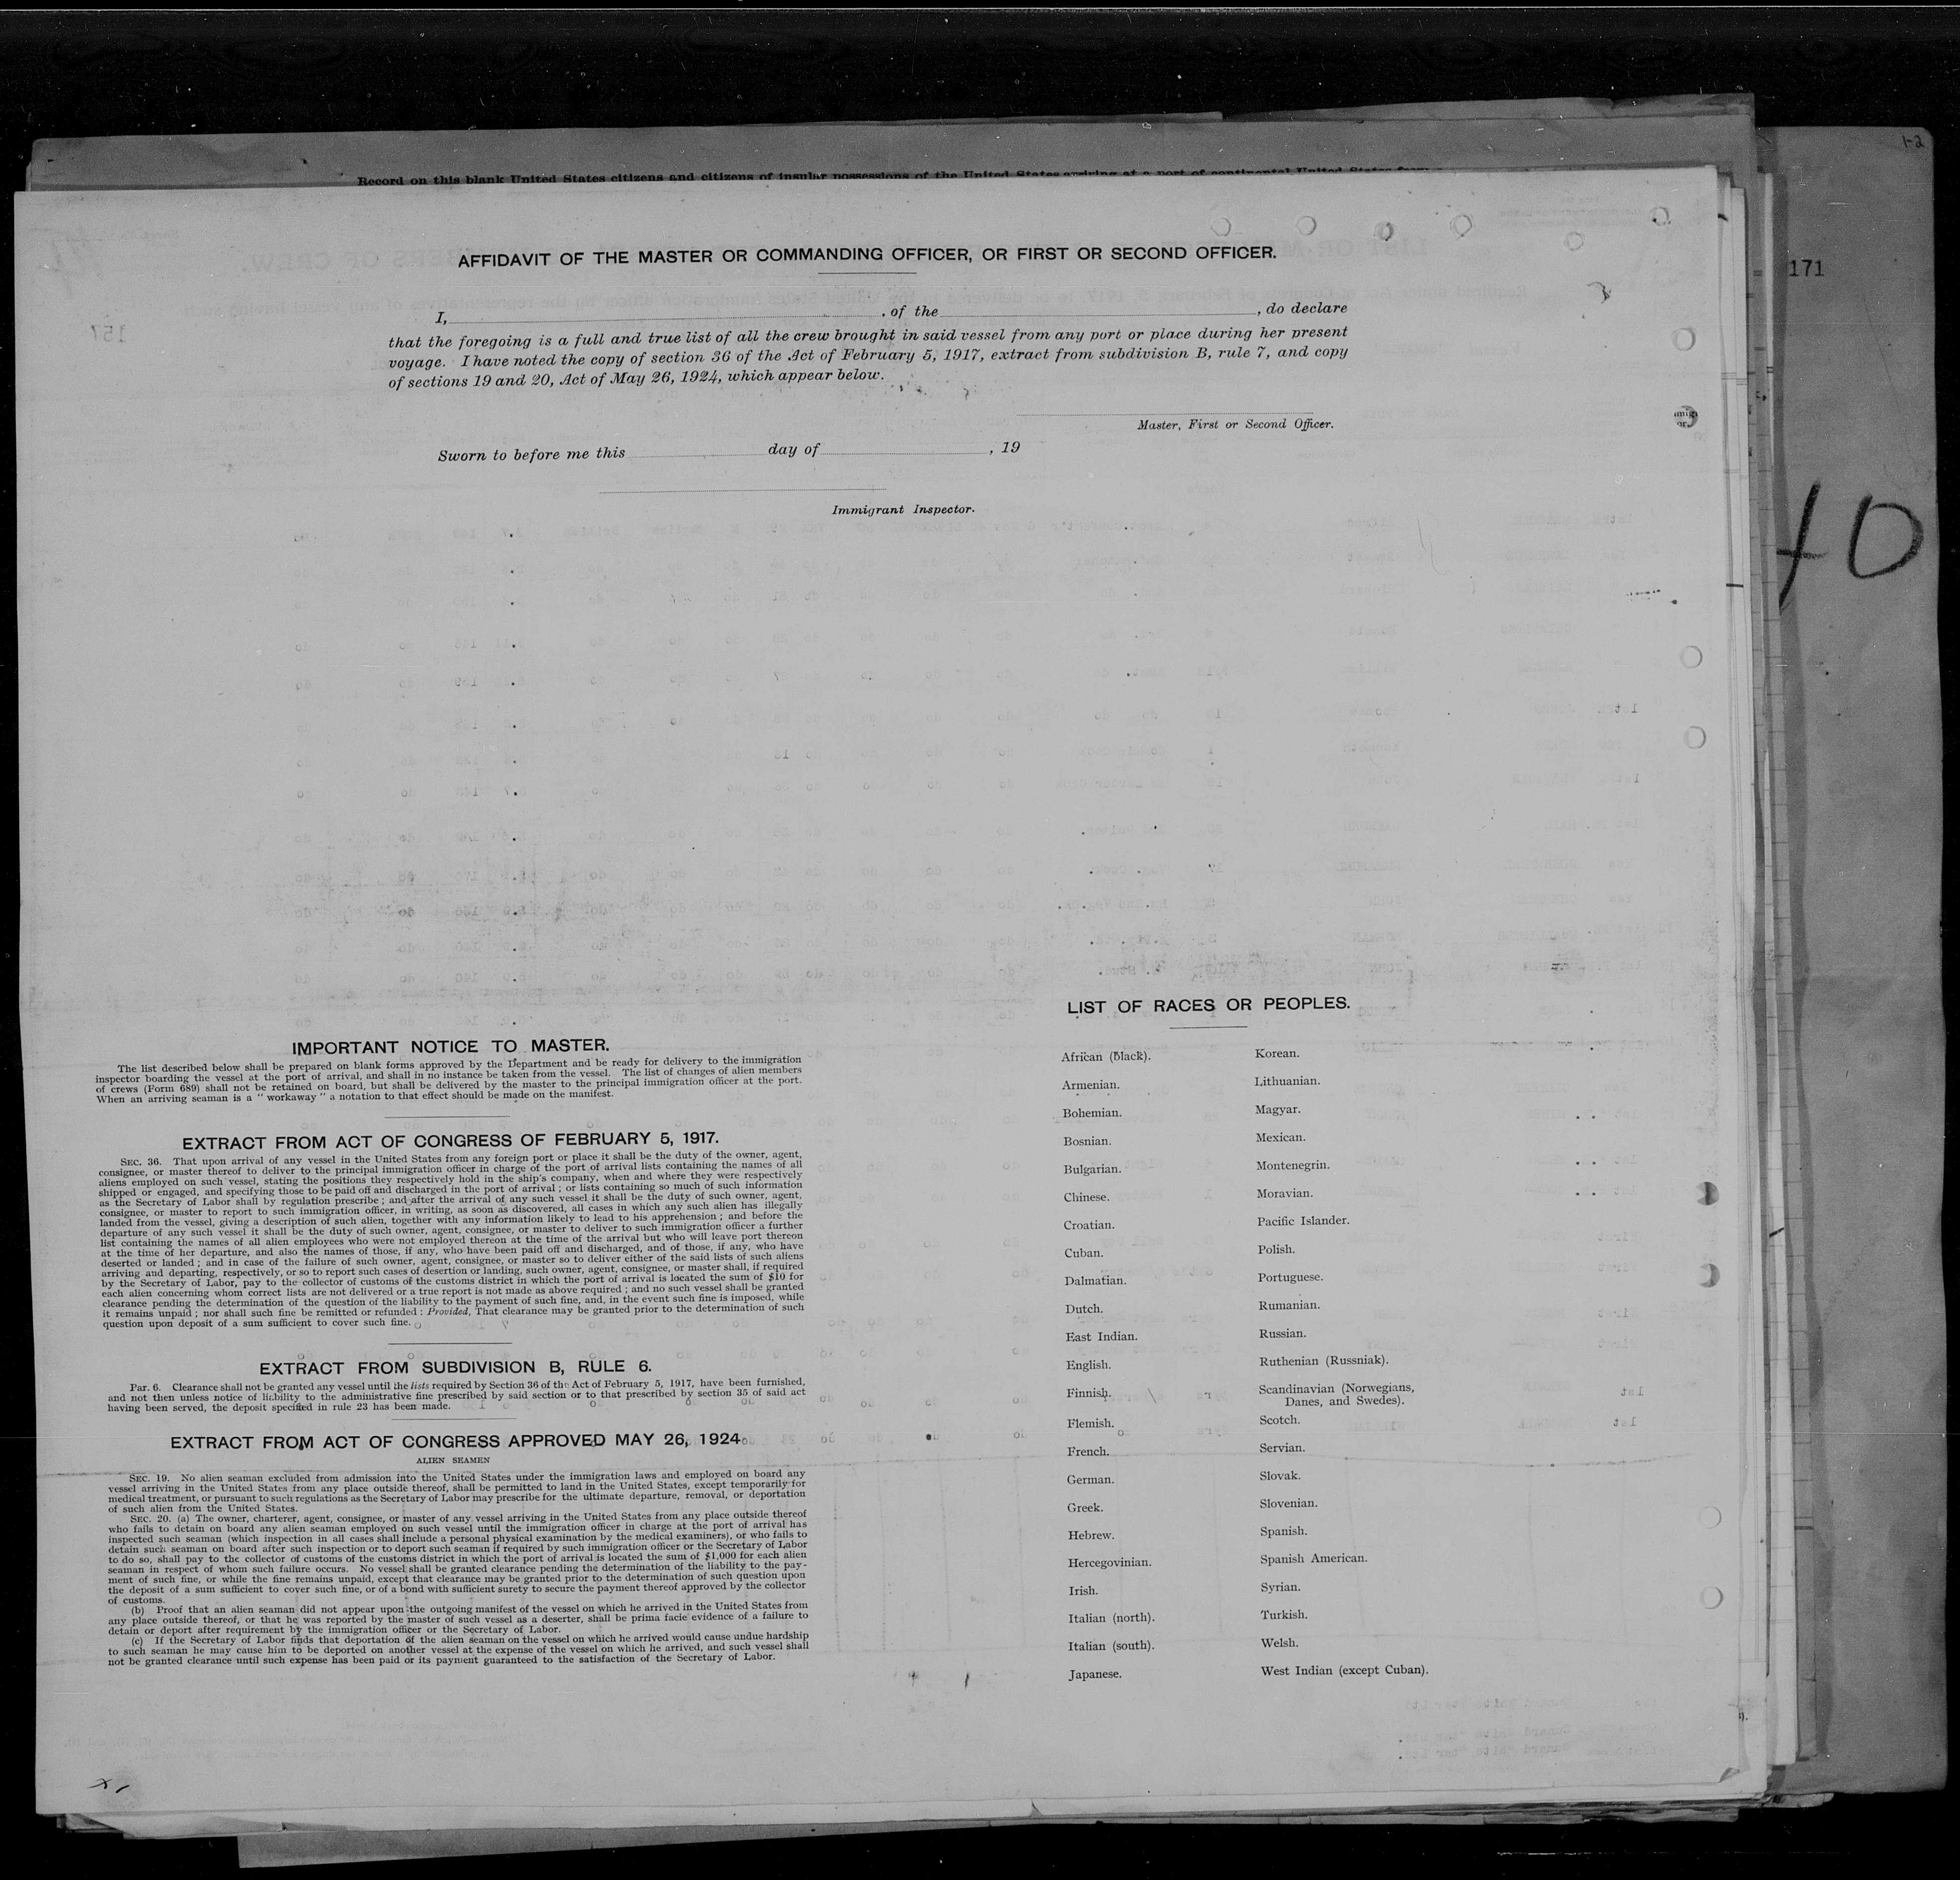 1-2
Record on this blank United States citizens and citizens of insular possessions of the United States arriving at a port of continental United States from
171
AFFIDAVIT OF THE MASTER OR COMMANDING OFFICER, OR FIRST OR SECOND OFFICER.
I, , of the , do declare
that the foregoing is a full and true list of all the crew brought in said vessel from any port or place during her present
voyage. I have noted the copy of section 36 of the Act of February 5, 1917, extract from subdivision B, rule 7, and copy
of sections 19 and 20, Act of May 26, 1924, which appear below.
Master, First or Second Officer.
Sworn to before me this day of , 19
Immigrant Inspector.
IMPORTANT NOTICE TO MASTER.
The list described below shall be prepared on blank forms approved by the Department and be ready for delivery to the immigration
inspector boarding the vessel at the port of arrival, and shall in no instance be taken from the vessel. The list of changes of alien members
of crews (Form 689) shall not be retained on board, but shall be delivered by the master to the principal immigration officer at the port.
When an arriving seaman is a " workaway " a notation to that effect should be made on the manifest.
EXTRACT FROM ACT OF CONGRESS OF FEBRUARY 5, 1917.
SEC. 36. That upon arrival of any vessel in the United States from any foreign port or place it shall be the duty of the owner, agent,
consignee, or master thereof to deliver to the principal immigration officer in charge of the port of arrival lists containing the names of all
aliens employed on such vessel, stating the positions they respectively hold in the ship's company, when and where they were respectively
shipped or engaged, and specifying those to be paid off and discharged in the port of arrival ; or lists containing so much of such information
as the Secretary of Labor shall by regulation prescribe ; and after the arrival of any such vessel it shall be the duty of such owner, agent,
consignee, or master to report to such immigration officer, in writing, as soon as discovered, all cases in which any such alien has illegally
landed from the vessel, giving a description of such alien, together with any information likely to lead to his apprehension ; and before the
departure of any such vessel it shall be the duty of such owner, agent, consignee, or master to deliver to such immigration officer a further
list containing the names of all alien employees who were not employed thereon at the time of the arrival but who will leave port thereon
at the time of her departure, and also the names of those, if any, who have been paid off and discharged, and of those, if any, who have
deserted or landed ; and in case of the failure of such owner, agent, consignee, or master so to deliver either of the said lists of such aliens
arriving and departing, respectively, or so to report such cases of desertion or landing, such owner, agent, consignee, or master shall, if required
by the Secretary of Labor, pay to the collector of customs of the customs district in which the port of arrival is located the sum of $10 for
each alien concerning whom correct lists are not delivered or a true report is not made as above required ; and no such vessel shall be granted
clearance pending the determination of the question of the liability to the payment of such fine, and, in the event such fine is imposed, while
it remains unpaid ; nor shall such fine be remitted or refunded : Provided, That clearance may be granted prior to the determination of such
question upon deposit of a sum sufficient to cover such fine.
EXTRACT FROM SUBDIVISION B, RULE 6.
Par. 6. Clearance shall not be granted any vessel until the lists required by Section 36 of the Act of February 5, 1917, have been furnished,
and not then unless notice of liability to the administrative fine prescribed by said section or to that prescribed by section 35 of said act
having been served, the deposit specified in rule 23 has been made.
EXTRACT FROM ACT OF CONGRESS APPROVED MAY 26, 1924.
ALIEN SEAMEN
SEC. 19. No alien seaman excluded from admission into the United States under the immigration laws and employed on board any
vessel arriving in the United States from any place outside thereof, shall be permitted to land in the United States, except temporarily for
medical treatment, or pursuant to such regulations as the Secretary of Labor may prescribe for the ultimate departure, removal, or deportation
of such alien from the United States.
SEC. 20. (a) The owner, charterer, agent, consignee, or master of any vessel arriving in the United States from any place outside thereof
who fails to detain on board any alien seaman employed on such vessel until the immigration officer in charge at the port of arrival has
inspected such seaman (which inspection in all cases shall include a personal physical examination by the medical examiners), or who fails to
detain such seaman on board after such inspection or to deport such seaman if required by such immigration officer or the Secretary of Labor
to do so, shall pay to the collector of customs of the customs district in which the port of arrival is located the sum of $1,000 for each alien
seaman in respect of whom such failure occurs. No vessel shall be granted clearance pending the determination of the liability to the pay-
ment of such fine, or while the fine remains unpaid, except that clearance may be granted prior to the determination of such question upon
the deposit of a sum sufficient to cover such fine, or of a bond with sufficient surety to secure the payment thereof approved by the collector
of customs.
(b) Proof that an alien seaman did not appear upon the outgoing manifest of the vessel on which he arrived in the United States from
any place outside thereof, or that he was reported by the master of such vessel as a deserter, shall be prima facie evidence of a failure to
detain or deport after requirement by the immigration officer or the Secretary of Labor.
(c) If the Secretary of Labor finds that deportation of the alien seaman on the vessel on which he arrived would cause undue hardship
to such seaman he may cause him to be deported on another vessel at the expense of the vessel on which he arrived, and such vessel shall
not be granted clearance until such expense has been paid or its payment guaranteed to the satisfaction of the Secretary of Labor.
LIST OF RACES OR PEOPLES.
African (black).
Armenian.
Bohemian.
Bosnian.
Bulgarian.
Chinese.
Croatian.
Cuban.
Dalmatian.
Dutch.
East Indian.
English.
Finnish.
Flemish.
French.
German.
Greek.
Hebrew.
Hercegovinian.
Irish.
Italian (north).
Italian (south).
Japanese.
Korean.
Lithuanian.
Magyar.
Mexican.
Montenegrin.
Moravian.
Pacific Islander.
Polish.
Portuguese.
Rumanian.
Russian.
Ruthenian (Russniak).
Scandinavian (Norwegians,
Danes, and Swedes).
Scotch.
Servian.
Slovak.
Slovenian.
Spanish.
Spanish American.
Syrian.
Turkish.
Welsh.
West Indian (except Cuban).